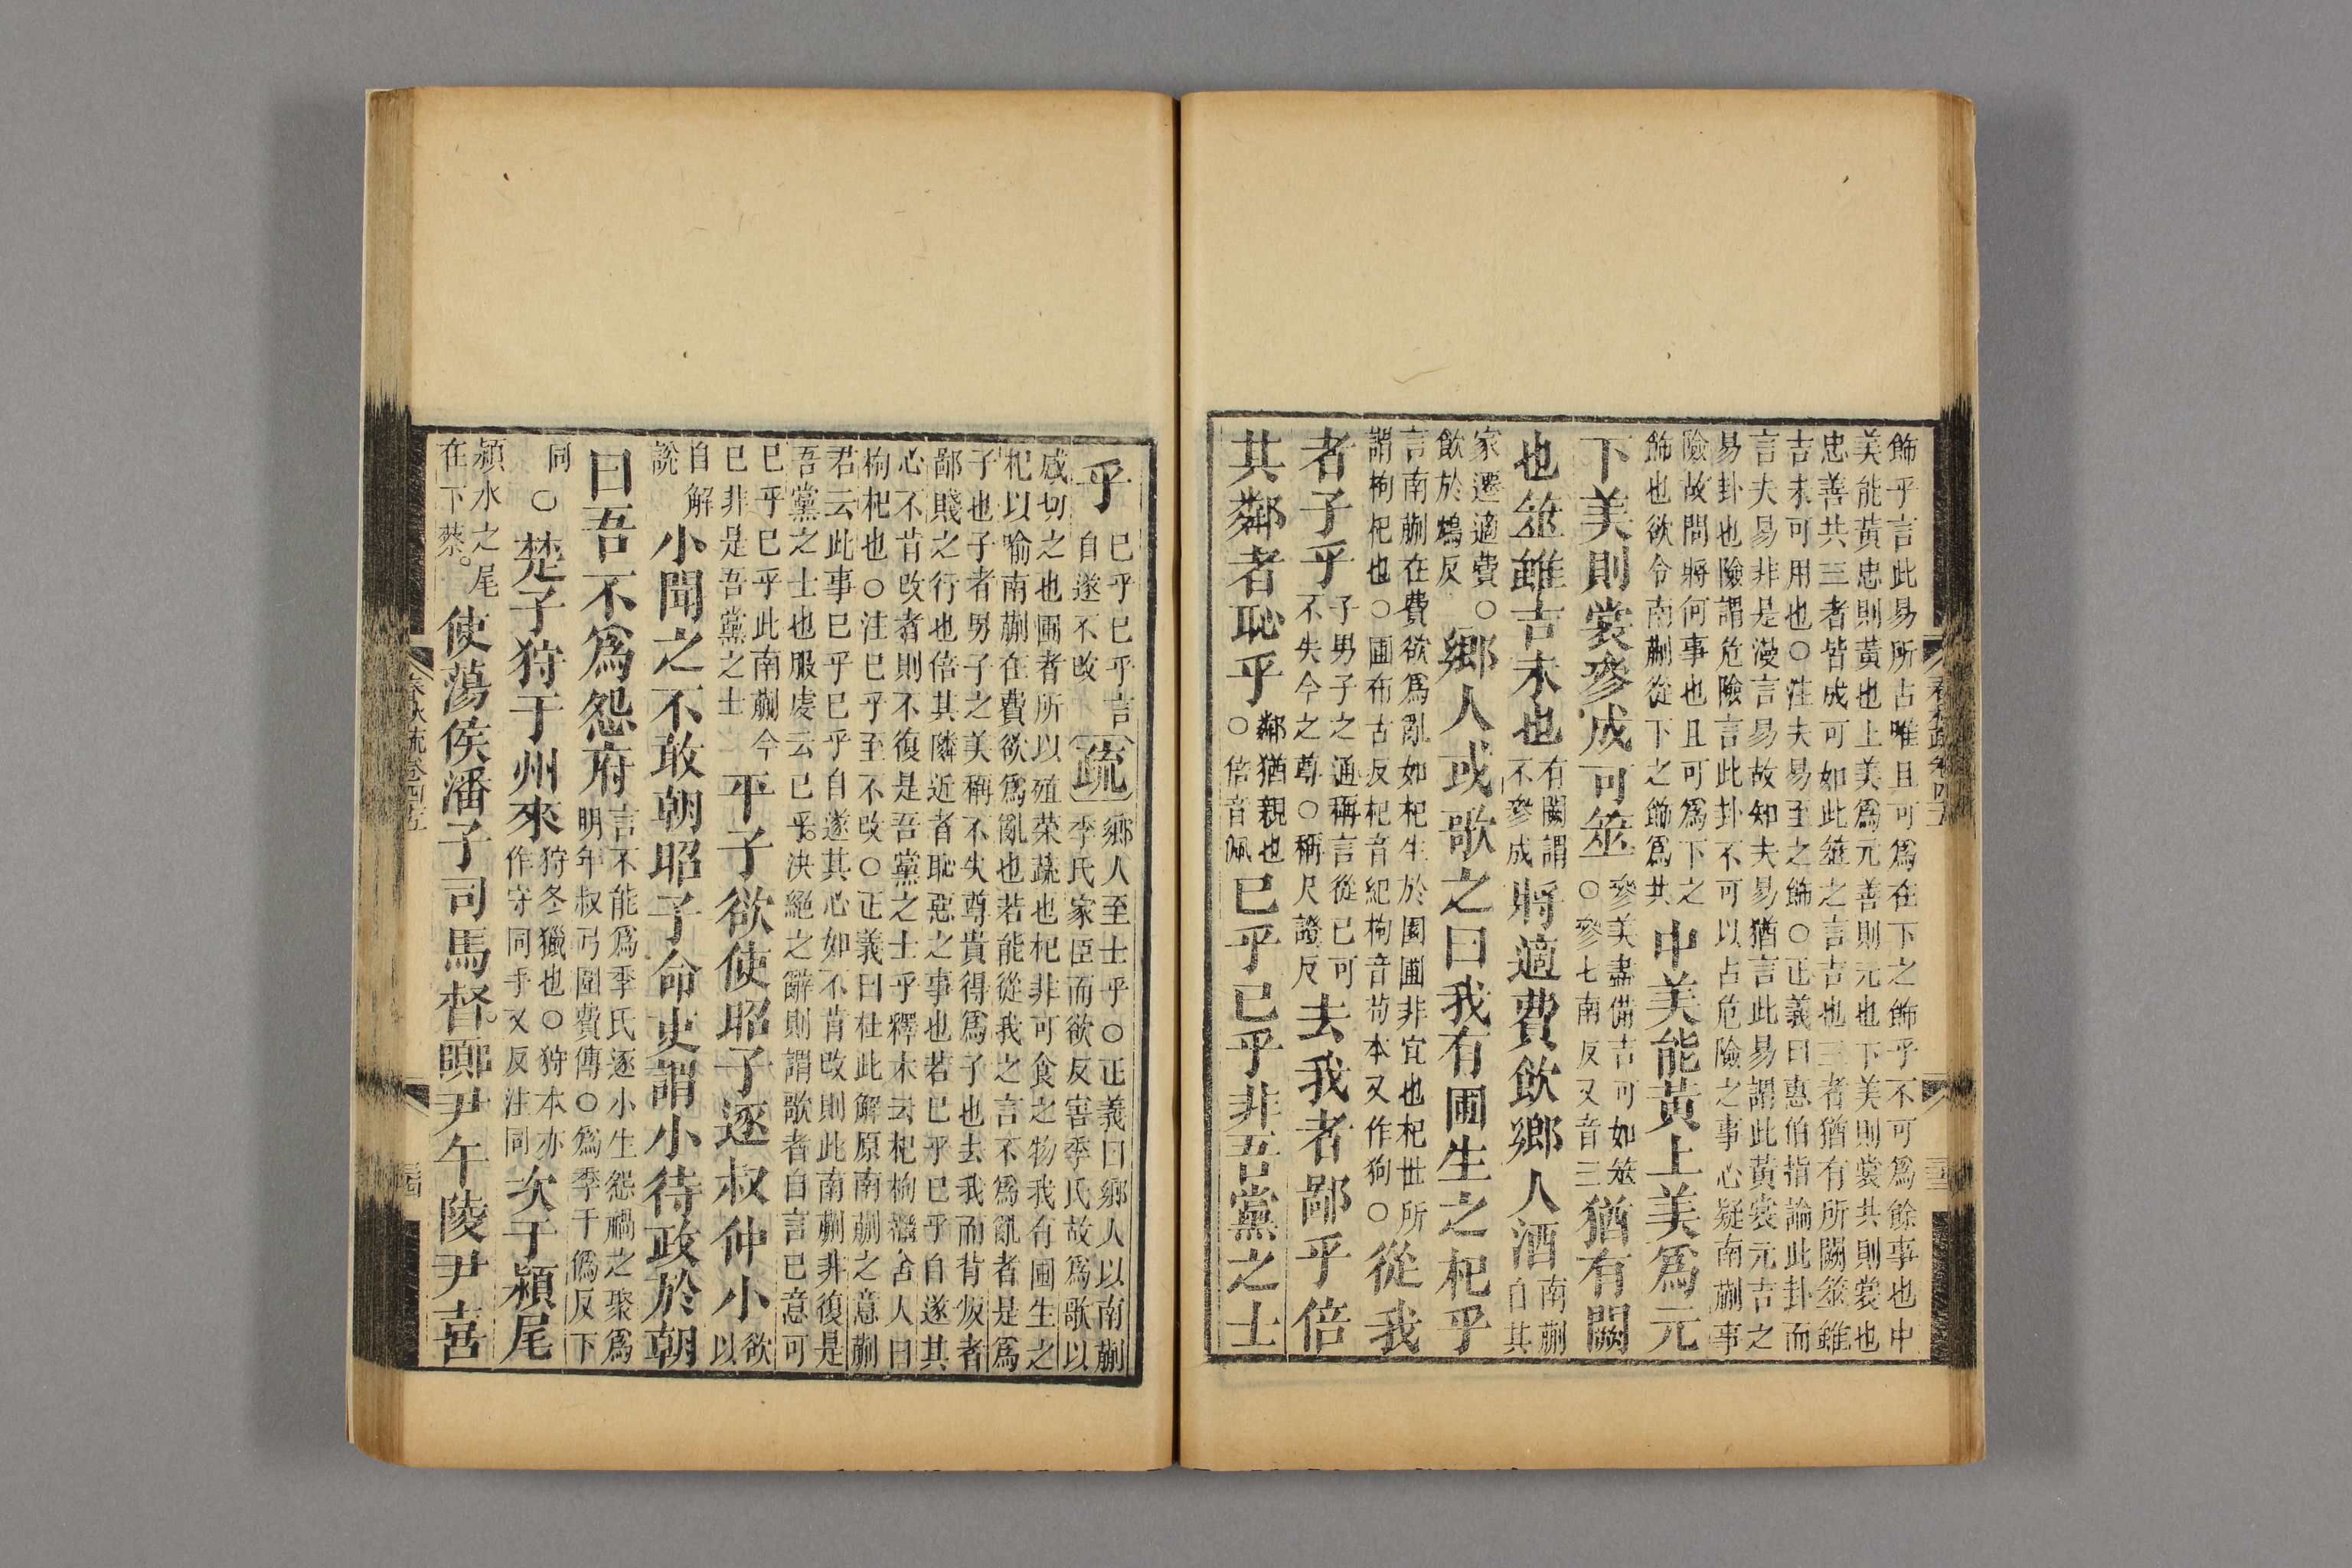 飾乎言此易所占唯且可爲在下之飾乎不可爲餘事也中
美能黃忠則黃也上美爲元善則元也下美則裳共則裳也
忠善共三者皆成可如此筮之言吉也三者猶有所闕筮雖
吉未可用也○注夫易至之飾○正義曰惠伯指論此卦而
言夫易非是漫言易故知夫易猶言此易謂此黃裳元吉之
易卦也險謂危險言此卦不可以占危險之事心疑南蒯事
險故問將何事也且可爲下之
飾也欲令南蒯從下之飾爲共
中美能黃上美爲元
下美則裳參成可筮
參美盡備吉可如筮
○參七南反又音三
猶有闕
也筮雖吉未也
有闕謂
不參成
將適費飲鄉人酒
南蒯
自其
家還適費○
飲於鴆反
鄉人或歌之曰我有圃生之杞乎
言南蒯在費欲爲亂如杞生於園圃非宜也杞世所
謂枸杞也○圃布古反杞音紀枸音苟本又作狗○
從我
者子乎
子男子之通稱言從已可
不失今之尊○稱尺證反
去我者鄙乎倍
其鄰者恥乎
鄰猶親也
○倍音佩
已乎已乎非吾黨之士
乎
已乎已乎言
自遂不改
疏
鄉人至士乎○正義曰鄉人以南蒯
季氏家臣而欲反害季氏故爲歌以
感切之也圃者所以殖菜蔬也杞非可食之物我有圃生之
杞以喻南蒯在費欲爲亂也若能從我之言不爲亂者是爲
子也子者男子之美稱不失尊貴得爲子也去我而背叛者
鄙賤之行也倍其隣近者恥惡之事也若已乎已乎自遂其
心不肯改者則不復是吾黨之士乎釋木云杞枸檵舍人曰
枸杞也○注已乎至不改○正義曰杜此解原南蒯之意蒯
君云此事已乎已乎自遂其心如不肯改則此南蒯非復是
吾黨之士也服虔云已乎決絕之辭則謂歌者自言已意可
已乎已乎此南蒯今
已非是吾黨之士
平子欲使昭子逐叔仲小
欲
以
自解
說
小聞之不敢朝昭子命吏謂小待政於朝
曰吾不爲怨府
言不能爲季氏逐小生怨禍之聚爲
明年叔弓圍費傳○爲季于僞反下
同○
楚子狩于州來
狩冬獵也○狩本亦
作守同手又反注同
次于潁尾
潁水之尾
在下蔡。
使蕩侯潘子司馬督。嚻尹午陵尹喜
春秋疏卷四五